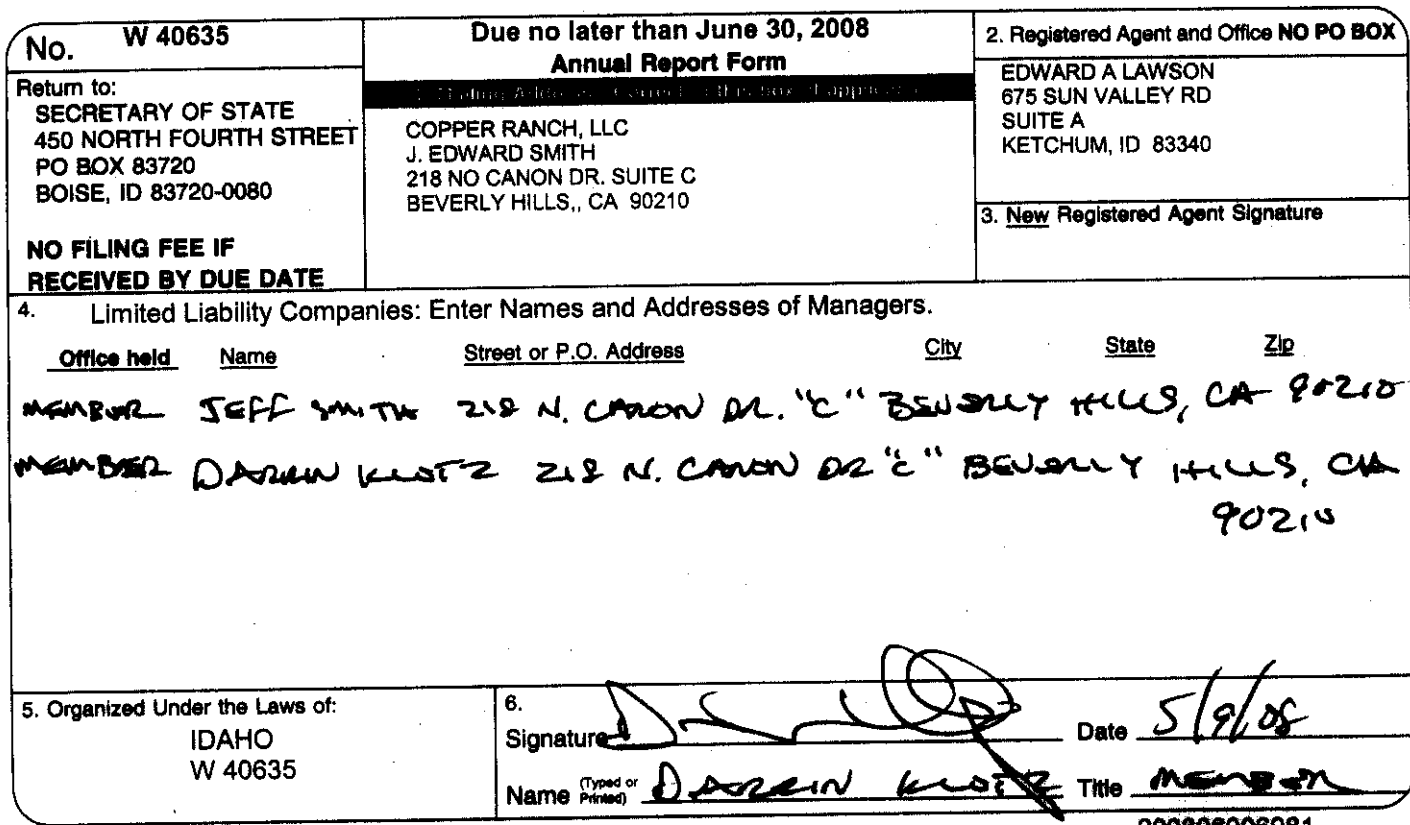 No. W 40635
Return to:
SECRETARY OF STATE
450 NORTH FOURTH STREET
PO BOX 83720
BOISE, ID 83720-0080
NO FILING FEE IF
RECEIVED BY DUE DATE
Due no later than June 30, 2008
Annual Report Form
COPPER RANCH, LLC
J. EDWARD SMITH
218 NO CANON DR. SUITE C
BEVERLY HILLS,, CA 90210
2. Registered Agent and Office NO PO BOX
EDWARD A LAWSON
675 SUN VALLEY RD
SUITE A
KETCHUM, ID 83340
3. New Registered Agent Signature
4. Limited Liability Companies: Enter Names and Addresses of Managers.
Office held Name Street or P.O. Address City State Zip
MEMBER JEFF SMITH 218 N. CANON DR. "C" BEVERLY HILLS, CA 90210
MEMBER DARRIN KLOTZ 218 N. CANON DR "C" BEVERLY HILLS, CA
90210
5. Organized Under the Laws of:
IDAHO
W 40635
6.
Signature Date 5/9/08
Name (Typed or Printed) DARRIN KLOTZ Title MEMBER